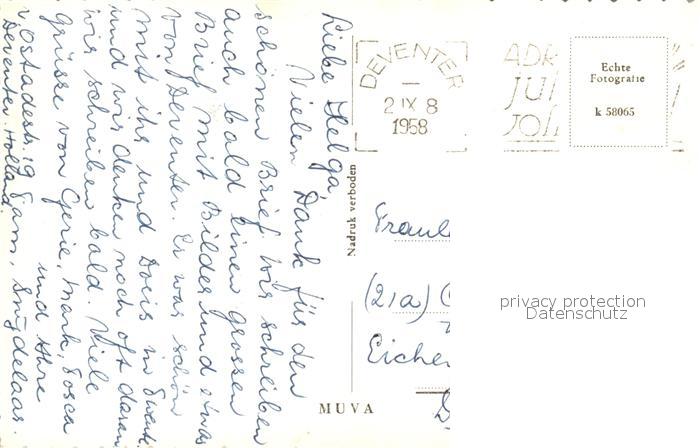 Liebe Helga,
Vielen Dank für den
schönen Brief. Wir schreiben
auch bald einen grossen
Brief mit Bilder und etwas
von Deventer. Er war schön
mit ihr und Doris in Twente
und wir denken noch oft daran
wir schreiben bald. Viele
Grüsse von Gerie, Mark, Tosca
und Ihre
Fam.
v Ostadestr. 19
Deventer. Holland.
DEVENTER
2 IX 8
1958
Echte
Fotografie
k 58065
Nadruk verboden
Fraul
(21a)
Eichen
MUVA
privacy protection
Datenschutz